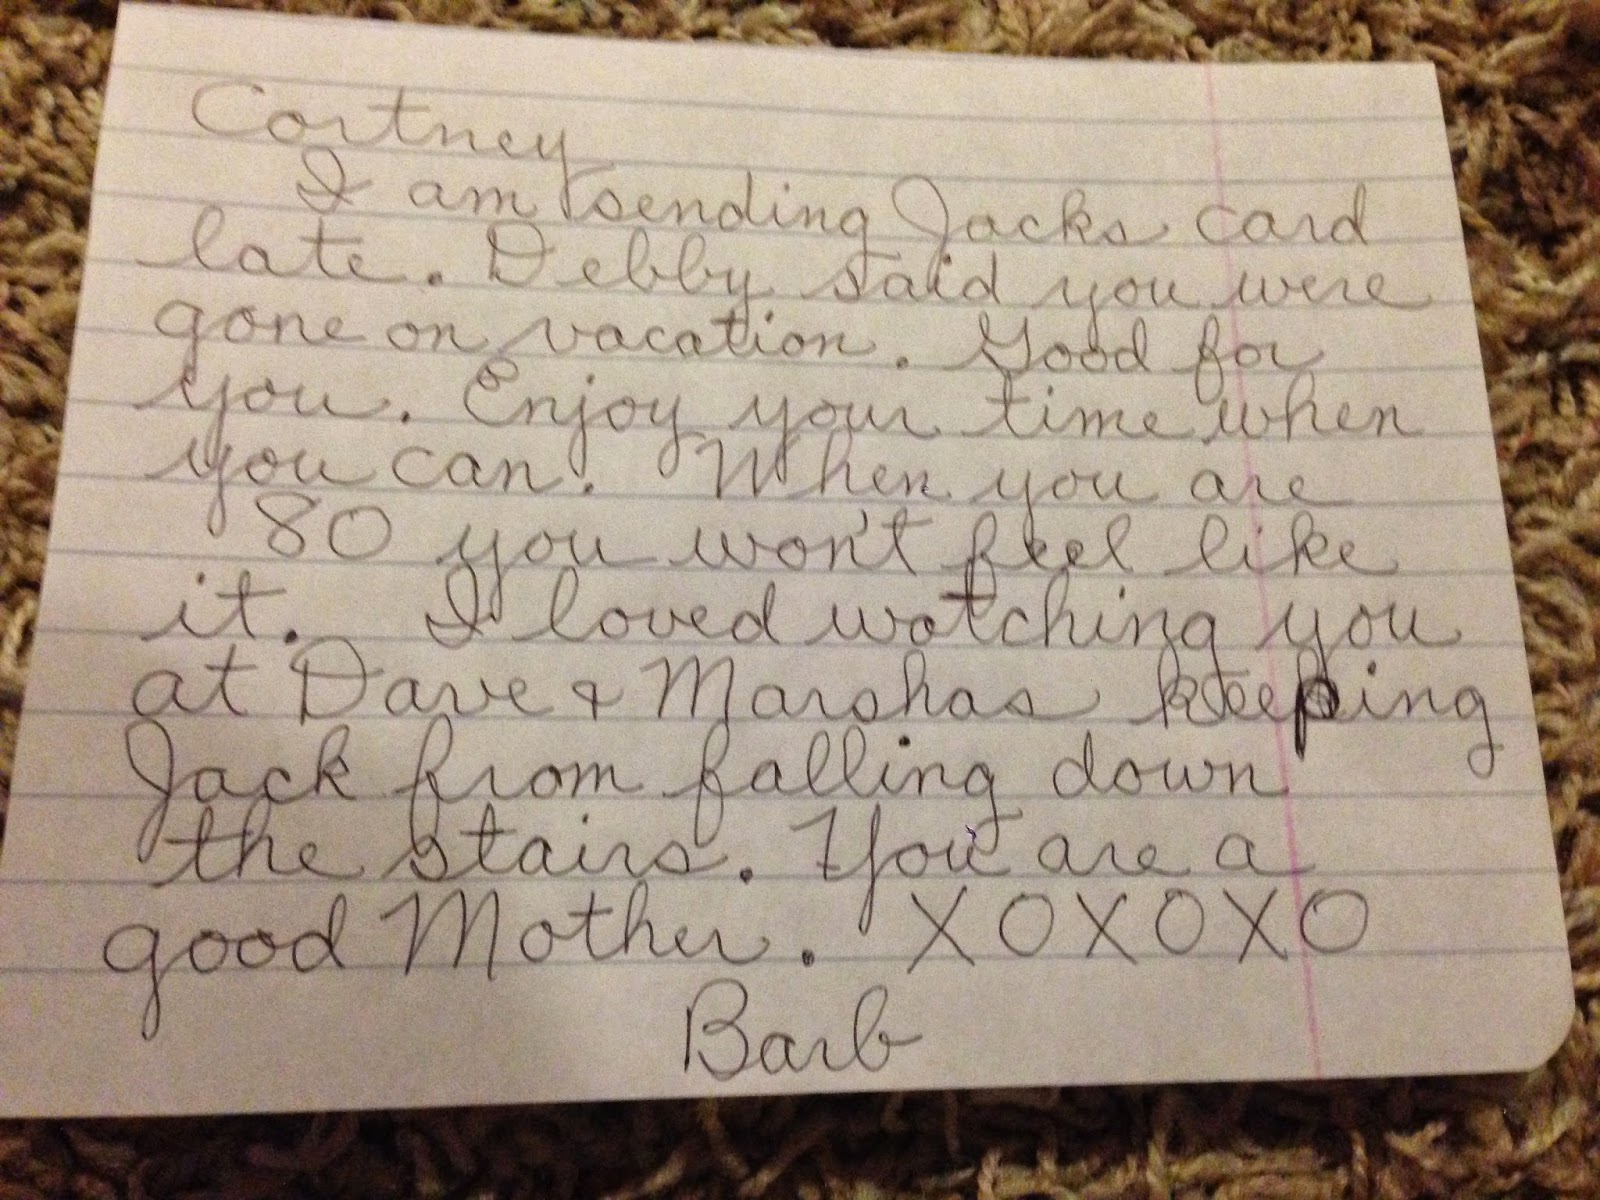 Cortney
I am sending Jacks card
late. Debby said you were
gone on vacation. Good for
you. Enjoy your time when
you can. When you are
80 you won't feel like
it. I loved watching you
at Dave & Marshas keeping
Jack from falling down
the stairs. You are a
good Mother. XOXOXO
Barb